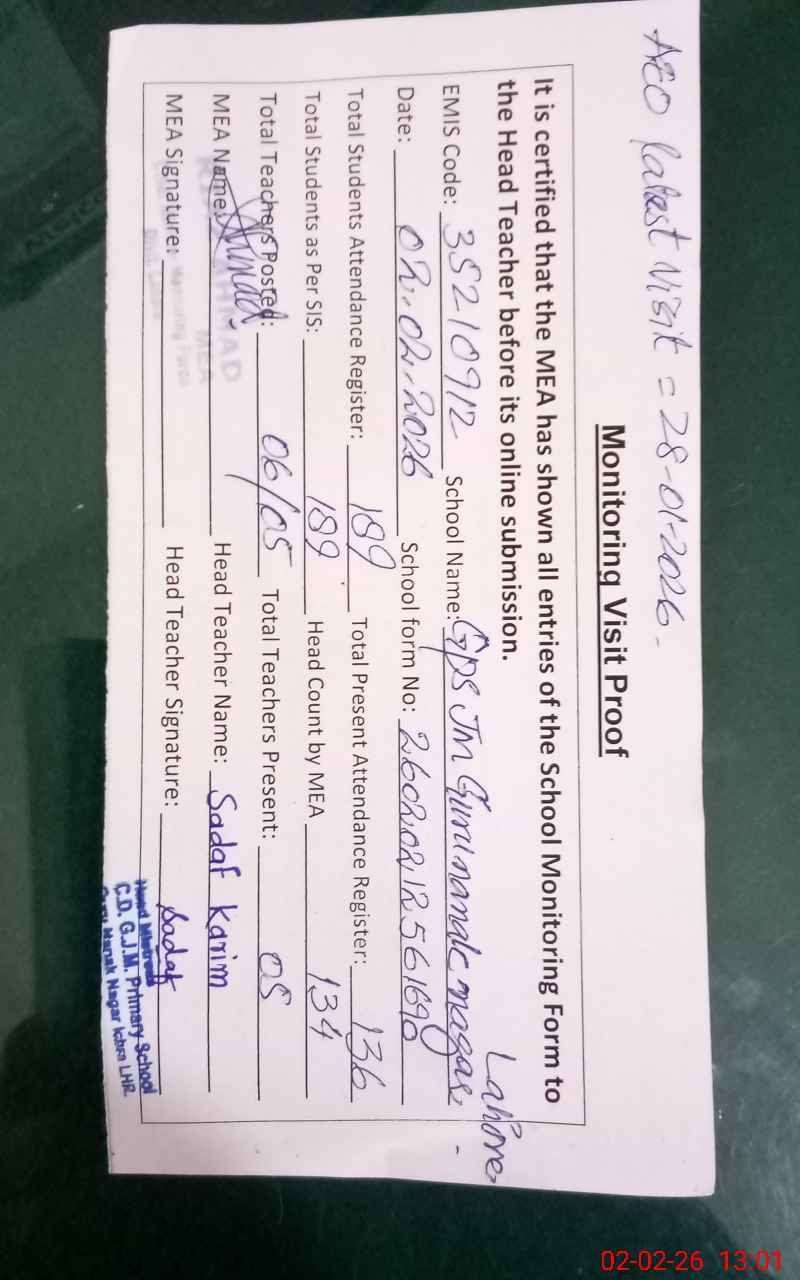 AEO latest visit = 28-01-2026.
Monitoring Visit Proof
It is certified that the MEA has shown all entries of the School Monitoring Form to
the Head Teacher before its online submission.
Lahore
EMIS Code: 35210912 School Name: Gps JM Gurunanak nagar
Date: 02.02.2026 School form No: 2602021256 1690
Total Students Attendance Register: 189 Total Present Attendance Register: 136
Total Students as Per SIS: 189 Head Count by MEA 134
Total Teachers Posted: 06/05 Total Teachers Present: 05
MEA Name: Head Teacher Name: Sadaf Karim
MEA Signature: Head Teacher Signature: Sadaf
AHMAD
MEA
Monitoring Force
Head Mistress
C.D. G.J.M. Primary School
Guru Nanak Nagar Ichra LHR
02-02-26 13:01